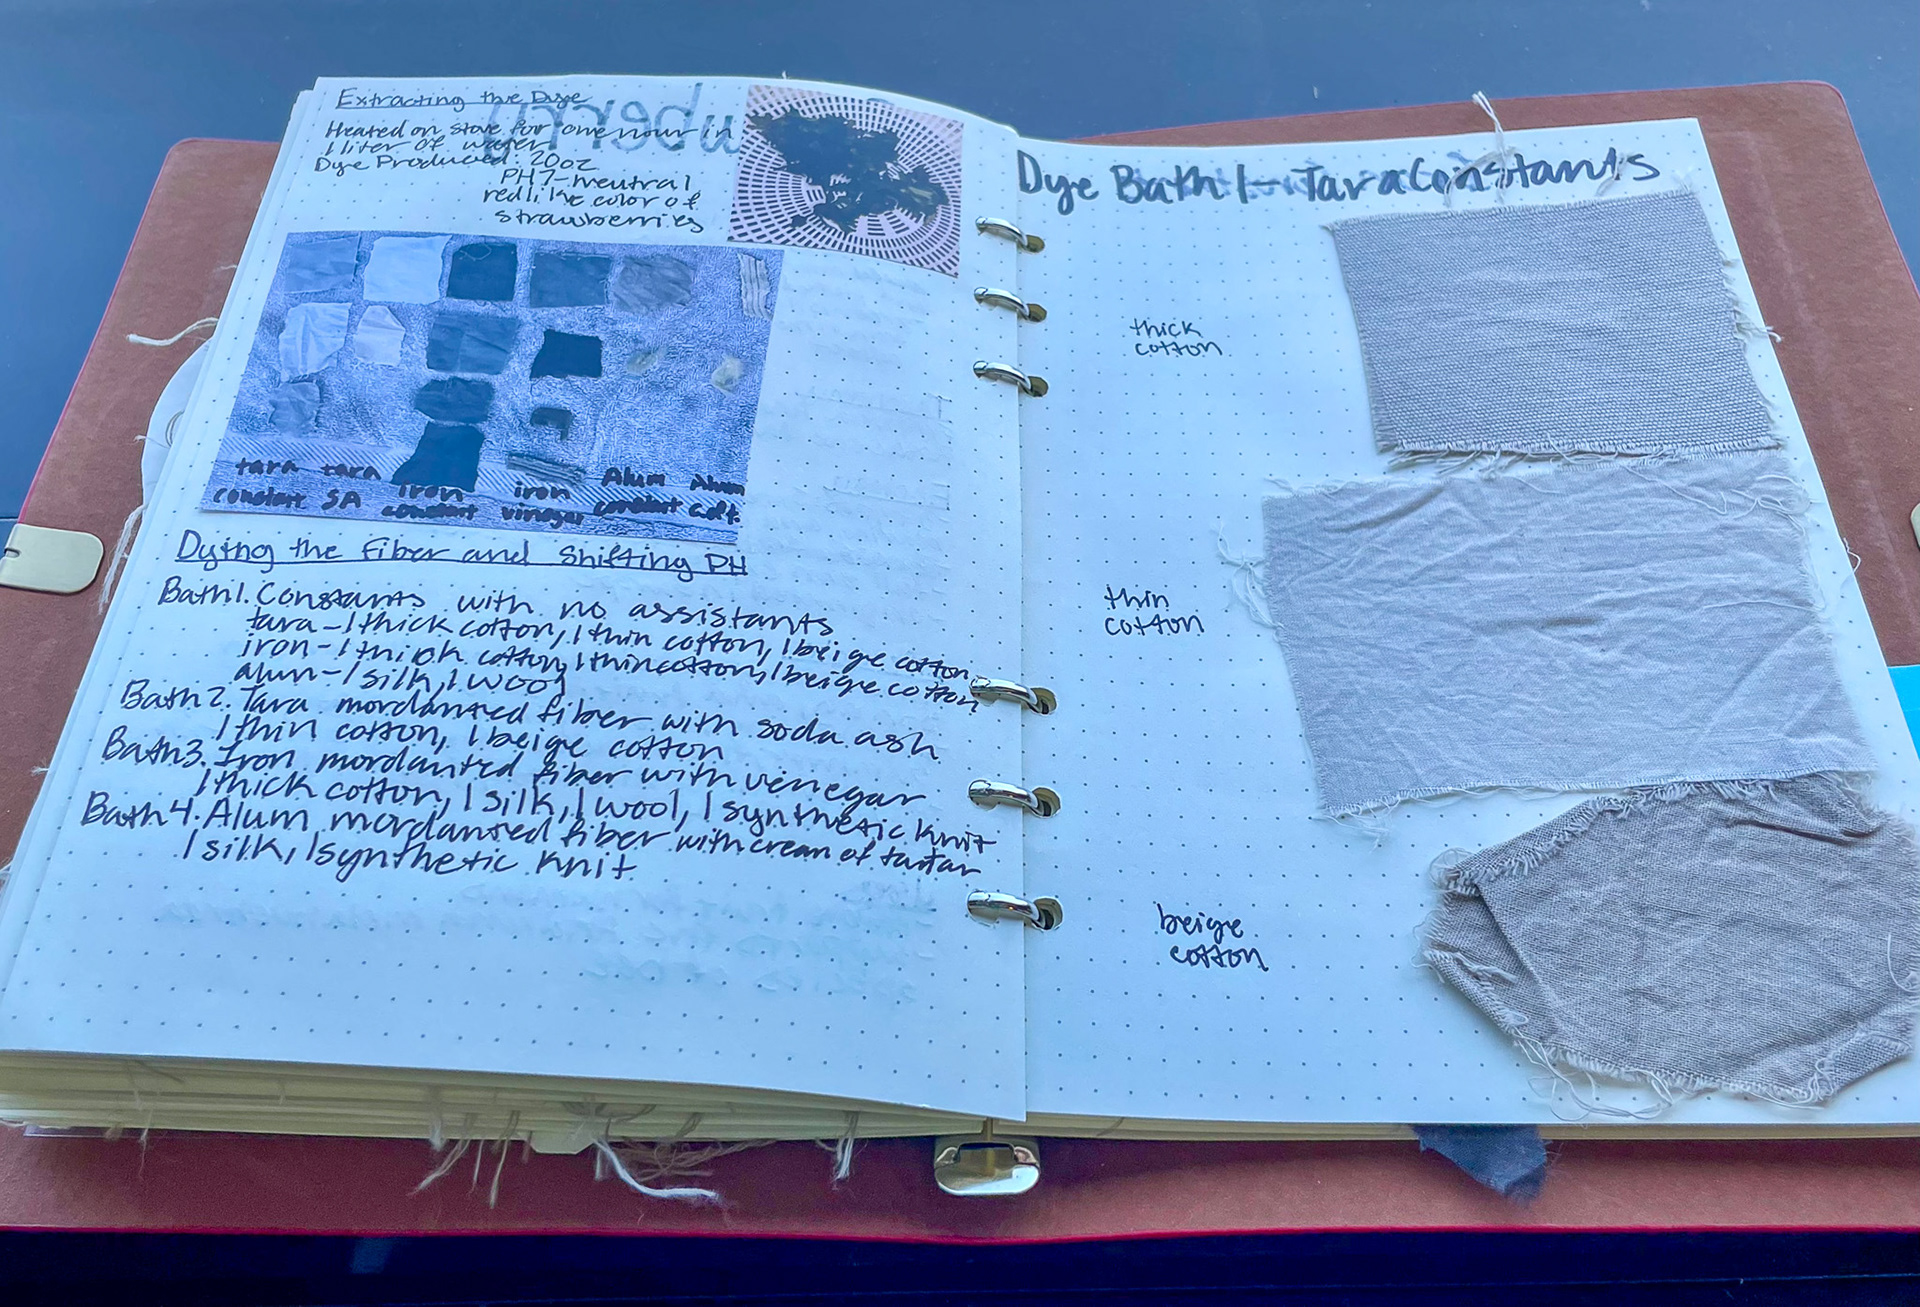 Extracting the Dye
Heated on stove for one hour in
1 liter of water
Dye Produced: 20oz
PH 7-neutral
red like color of
strawberries
tara tara iron iron Alum Alum
constant SA constant vinegar constant c.o.t.
Dying the Fiber and Shifting PH
Bath 1. Constants with no assistants
tara-1 thick cotton, 1 thin cotton, 1 beige cotton
iron-1 thick cotton, 1 thin cotton, 1 beige cotton
alum-1 silk, 1 wool
Bath 2. Tara mordanted fiber with soda ash
1 thin cotton, 1 beige cotton
Bath 3. Iron mordanted fiber with venegar
1 thick cotton, 1 silk, 1 wool, 1 synthetic knit
Bath 4. Alum mordanted fiber with cream of tartar
1 silk, 1 synthetic knit
Dye Bath 1- Tara Constants
thick
cotton
thin
cotton
beige
cotton